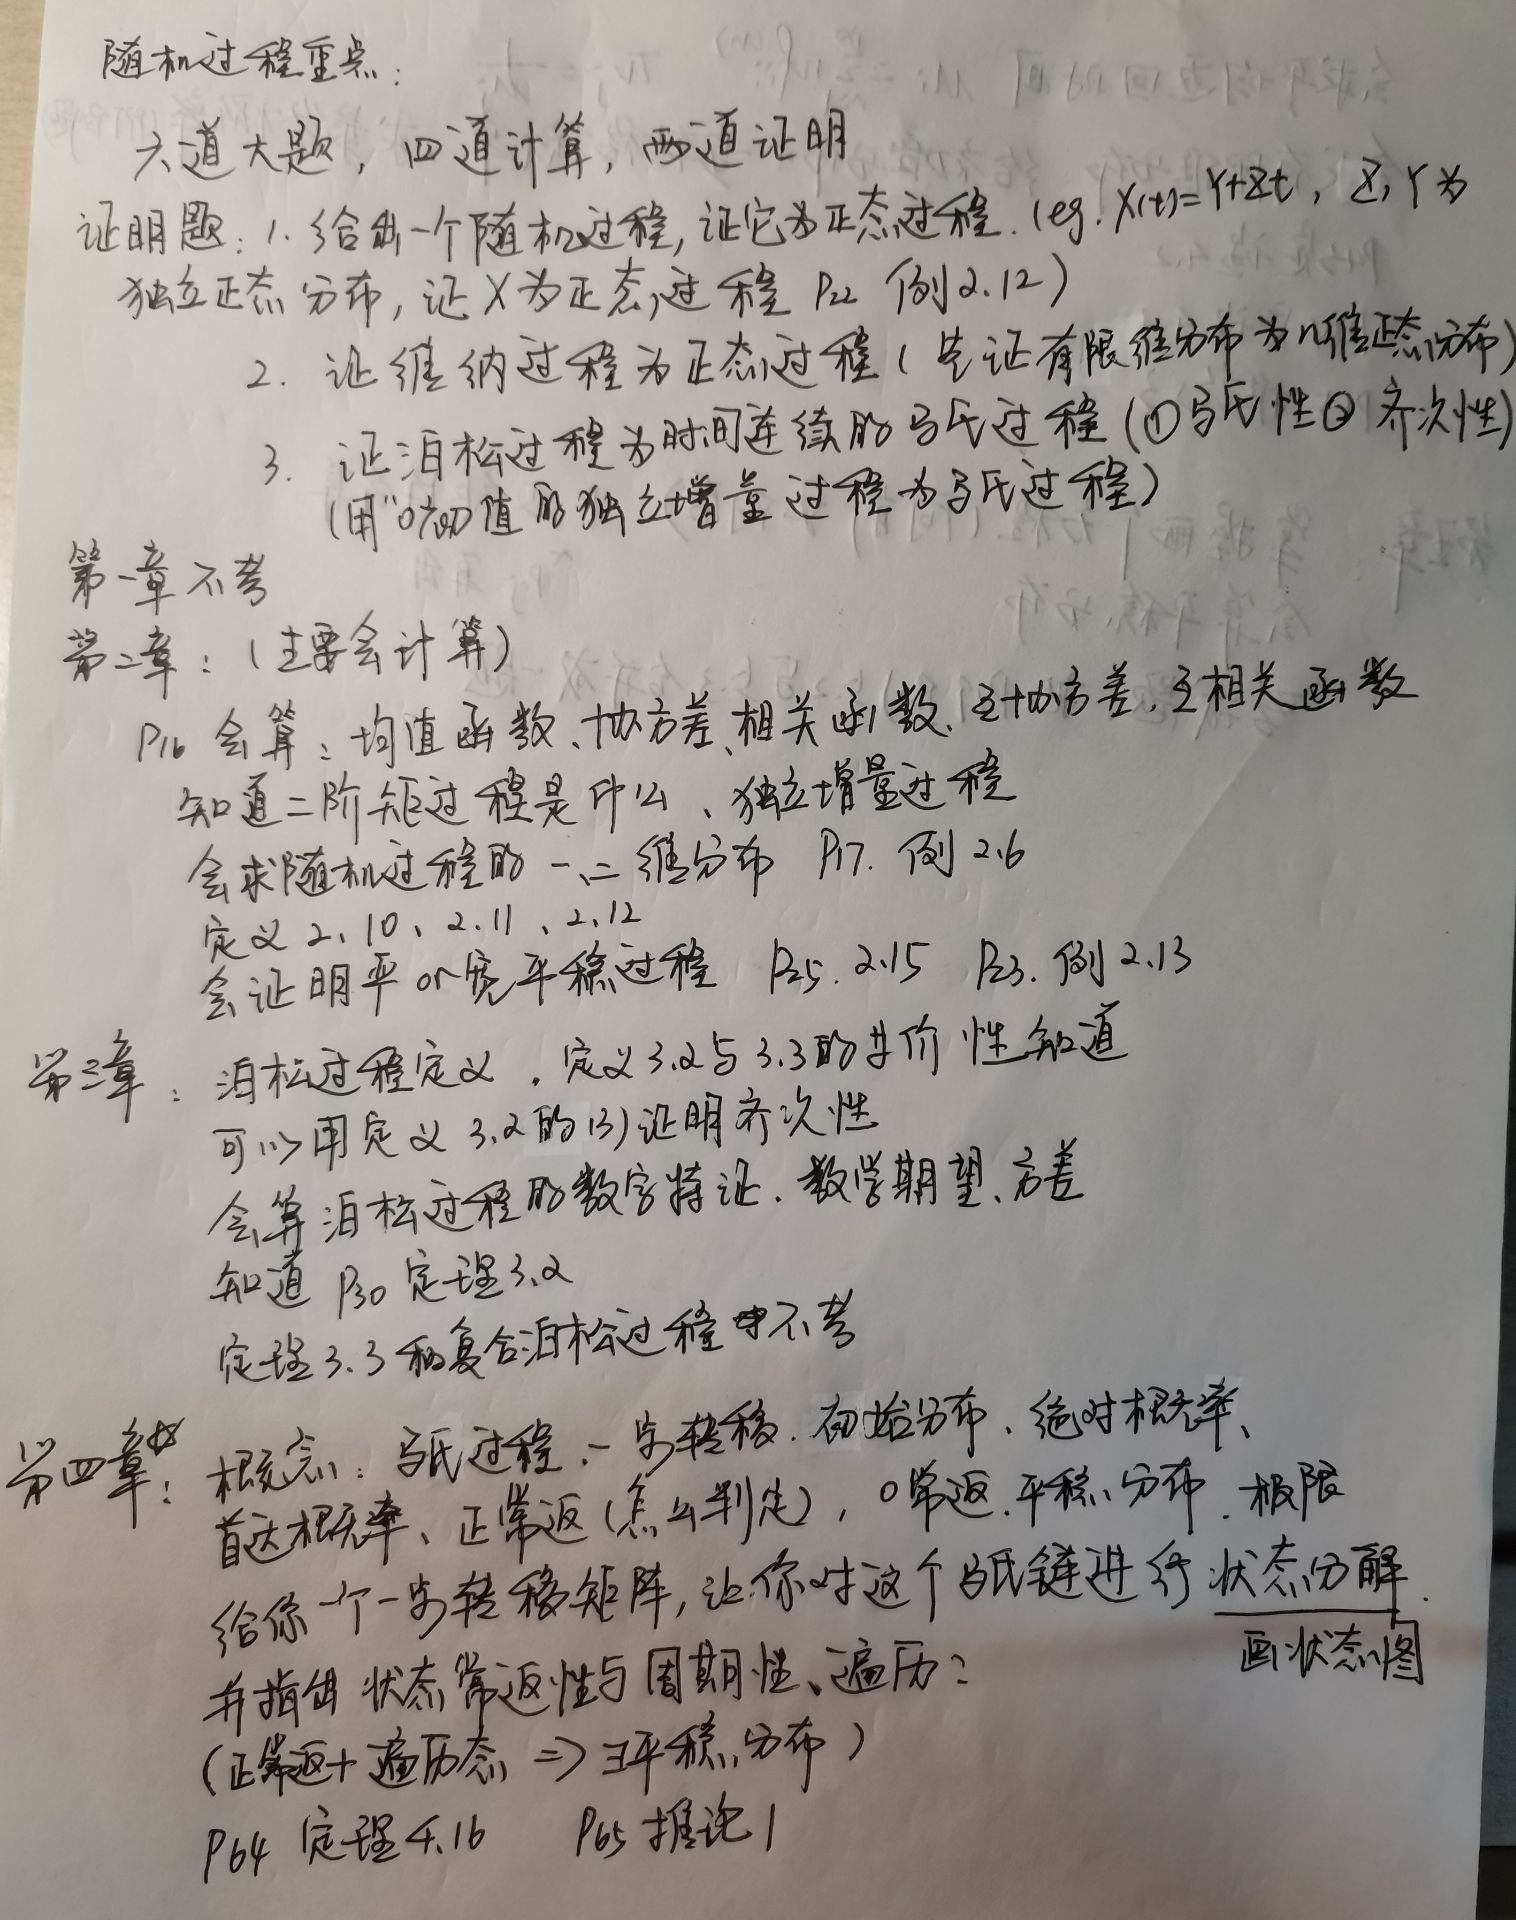 随机过程重点：
六道大题，四道计算，两道证明
证明题：1. 给出一个随机过程，证它为正态过程.（eg. X(t)=Y+Zt，Z，Y为
独立正态分布，证X为正态过程 P22 例2.12）
2. 证维纳过程为正态过程（先证有限维分布为n维正态分布）
3. 证泊松过程为时间连续的马氏过程（①马氏性② 齐次性）
（用"0初值的独立增量过程为马氏过程）
第一章不考
第二章：（主要会计算）
P16 会算：均值函数、协方差、相关函数、互协方差，互相关函数
知道二阶矩过程是什么、独立增量过程
会求随机过程的一、二维分布 P17. 例2.6
定义2.10、2.11、2.12
会证明平or宽平稳过程 P25. 2.15 P23. 例2.13
第三章：泊松过程定义，定义3.2与3.3的等价性知道
可以用定义3.2的(3)证明齐次性
会算泊松过程的数字特征.数学期望、方差
知道 P30 定理3.2
定理3.3和复合泊松过程不考
第四章☆：概念：马氏过程、一步转移.初始分布、绝对概率、
首达概率、正常返（怎么判定），0常返.平稳分布.极限
给你一个一步转移矩阵，让你对这个马氏链进行状态分解.
画状态图
并指出状态常返性与周期性、遍历？
（正常返+遍历态 => ∃平稳分布）
P64 定理4.16 P65 推论1